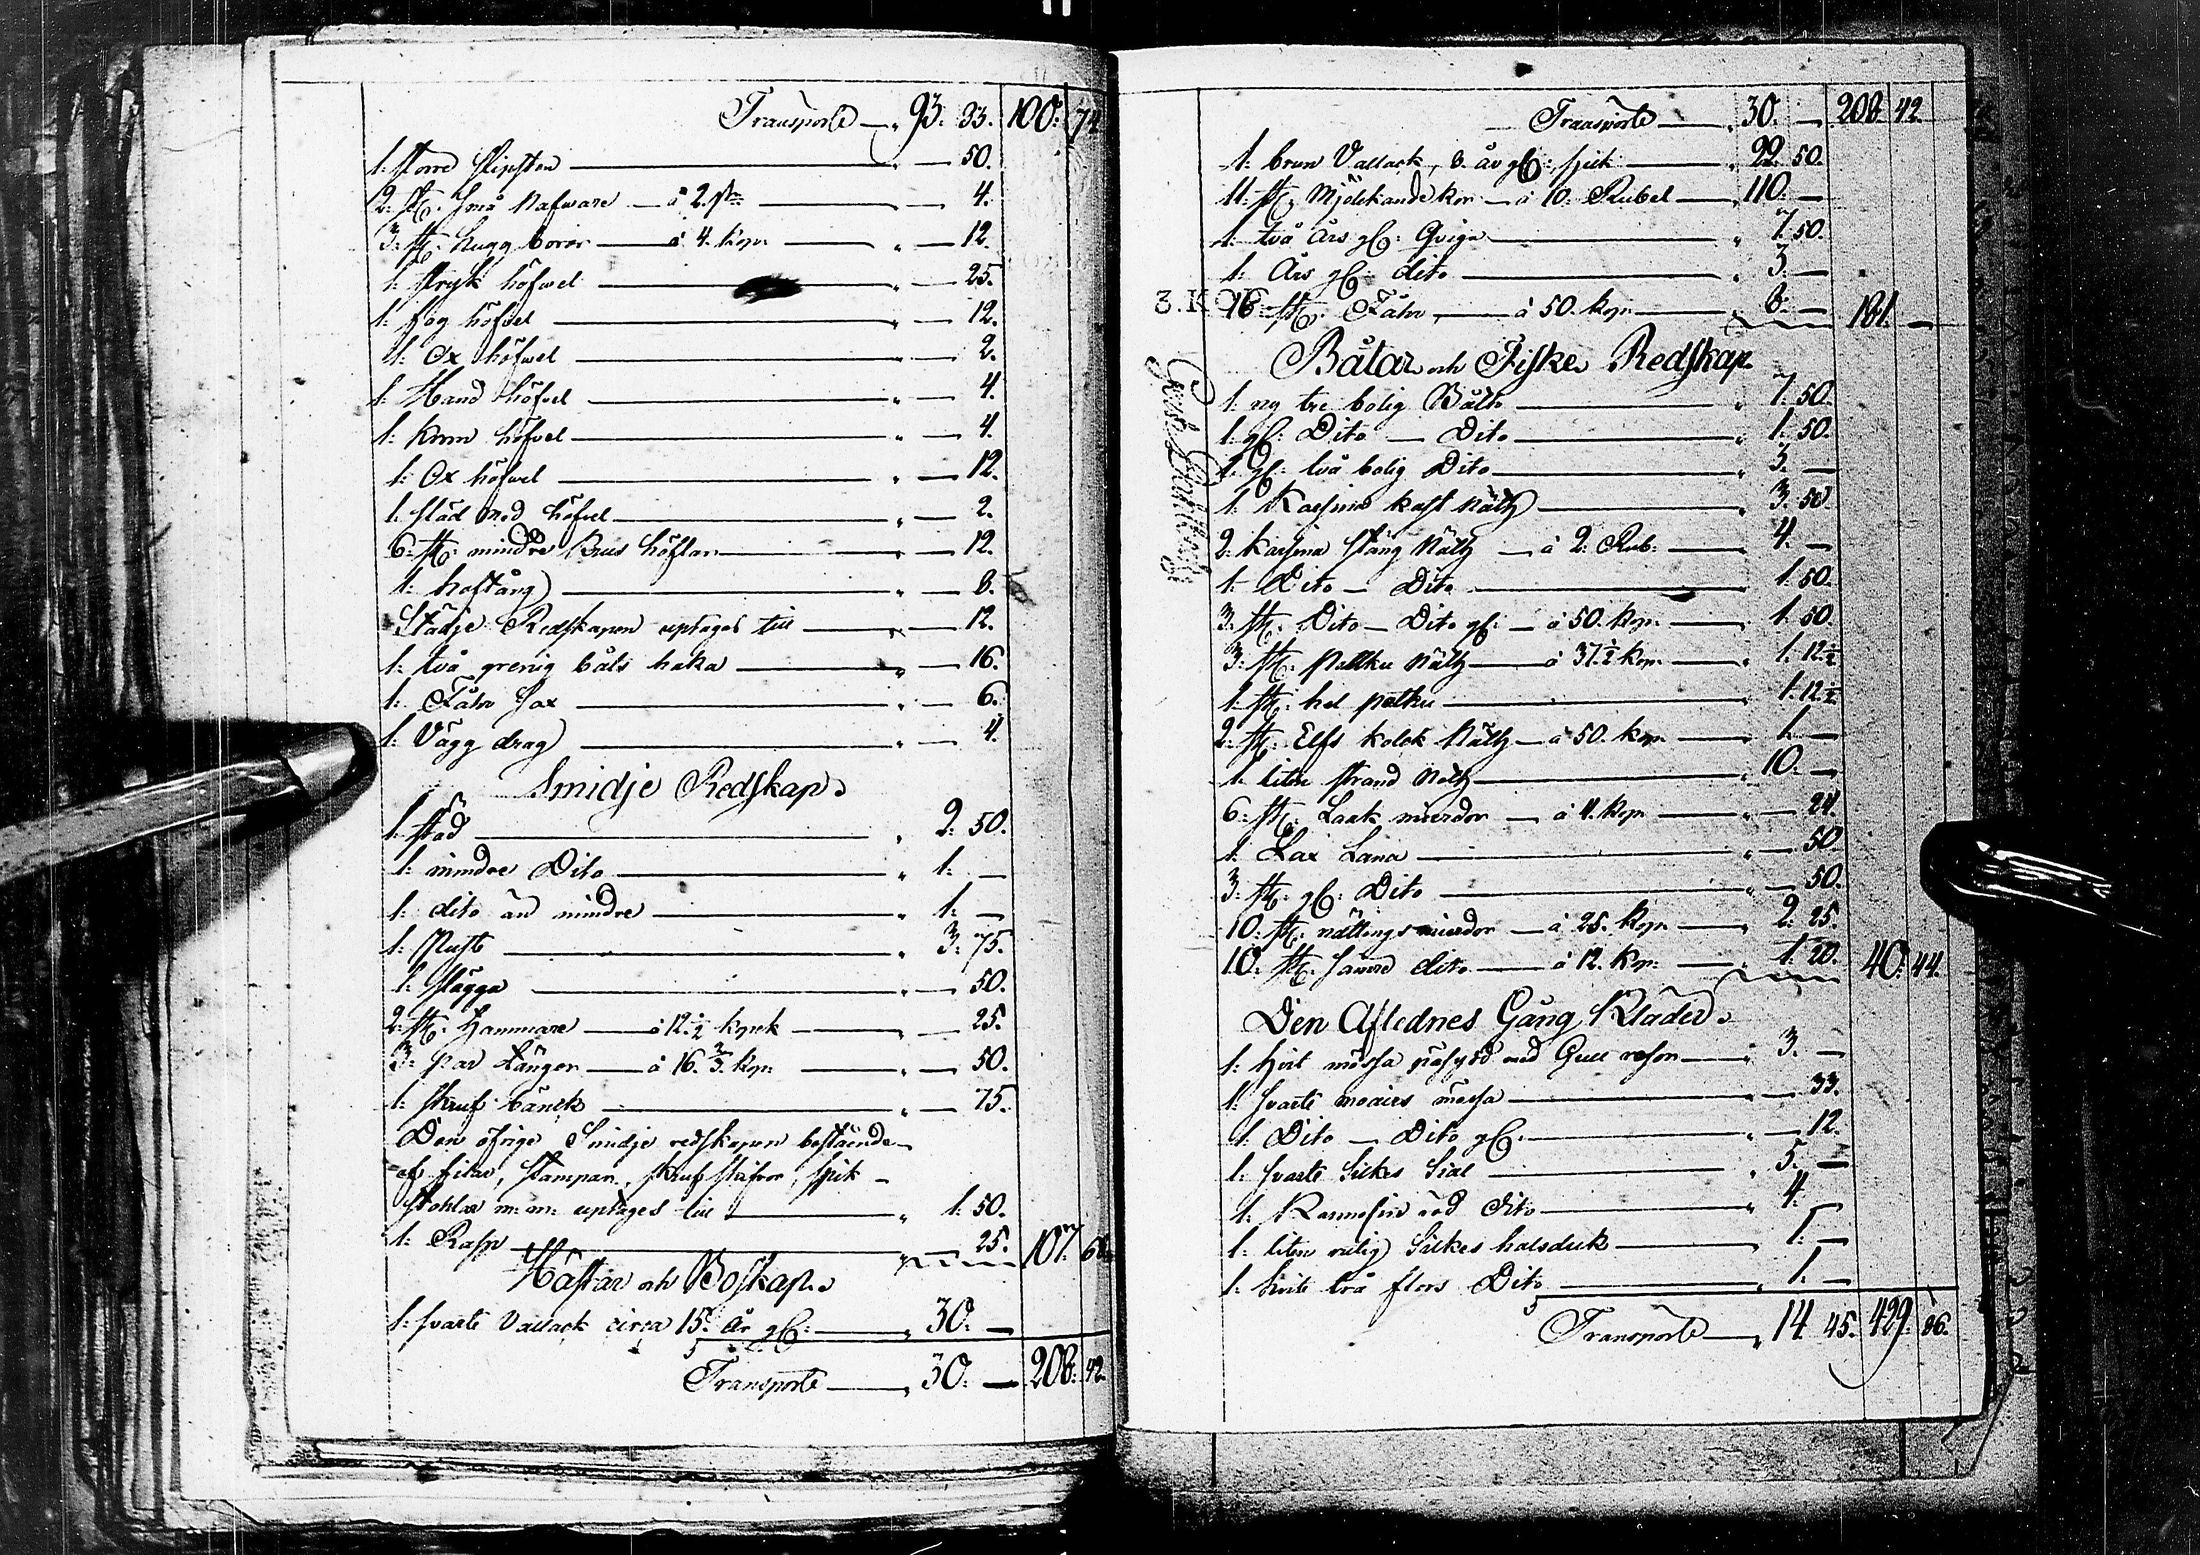 Transporte — 93. 33. 100. 74
1: större slipsten — 50.
2: st: små nafware — à 2. — 4.
3: st: hugg borar — à 4. kop: — 12.
1: stryk höfwel — 25.
1: fog höfvel — 12.
1: Ox höfwel — 2.
1: Hand höfvel — 4.
1: Krum höfvel — 4.
1: Ox höfwel — 12.
1: släd Med höfvel — 2.
6: st: mindre höflar — 12.
1: hoftång — 8.
Städje Redskapen uptages till — 12.
1: två grenig båts haka — 16.
1: Fåhr Sax — 6.
1: Vägg drag — 4.
Smidje Redskap.
1: städ — 2. 50.
1: mindre Dito — 1. —
1: dito än mindre — 1. —
1: Pust — 3. 75.
1: slägga — 50.
2: st: Hammare — à 12 1/2 kopek — 25.
3: par tänger — à 16 2/3 kop: — 50.
1: skruf bänck — 75.
Den öfrige Smidje redskapen bestående
af filar, stampar, skruf skifvor, spik
m: m: uptages till — 1. 50.
1: Rasp — 25. 107.
Hästar och Boskap.
1: svart Vallack circa 15. År gl: — 30. —
Transporte — 30. — 208. 42.
Transporte — 30. — 208 42.
1: brun Vallack, 8. år gl: — 22. 50.
11: st: Mjölckande kor — à 10: Rubel — 110. —
1: två Års gl: Qviga — 7. 50.
1: Års gl: dito — 3. —
16: st: Fåhr — à 50. kop: — 8. — 181. —
Båtar och Fiske Redskap
1: ny tre bolig Båth — 7. 50.
1: gl: Dito — Dito — 1. 50.
1: gl: två bolig Dito — 3. —
1: kast Näth — 3. 50.
2: stång Näth — à 2: Rub: — 4. —
1: Dito — Dito — 1. 50.
3: st: Dito — Dito gl: — à 50. kop: — 1. 50.
3: st: Näth — à 37 1/2 kop: — 1. 12 1/2
1: st: hel — 1. 12 1/2
2: st: Elfs kolck Näth — à 50. kop: — 1. —
1: liten strand Noth — 10. —
6: st: Laak mierdor — à 4. kop: — 24.
1: Lax Lana — 50
3: st: gl: Dito — 50.
10: st: nättings mierdor — à 25. kop: — 2. 25.
10: st: samre dito — à 12. kop: — 1. 20. 40. 44.
Den Aflednes Gång Kläder.
1: hvit mössa med Gull — 3. —
1: svart moairs mössa — 33.
1: Dito — Dito gl: — 12.
1: svart Silkes Sial — 5. —
1: Karmosin röd Dito — 4. —
1: liten Silkes halsduk — 1. —
1: hvit flors Dito — 1. —
Transporte — 14 45. 429. 86.